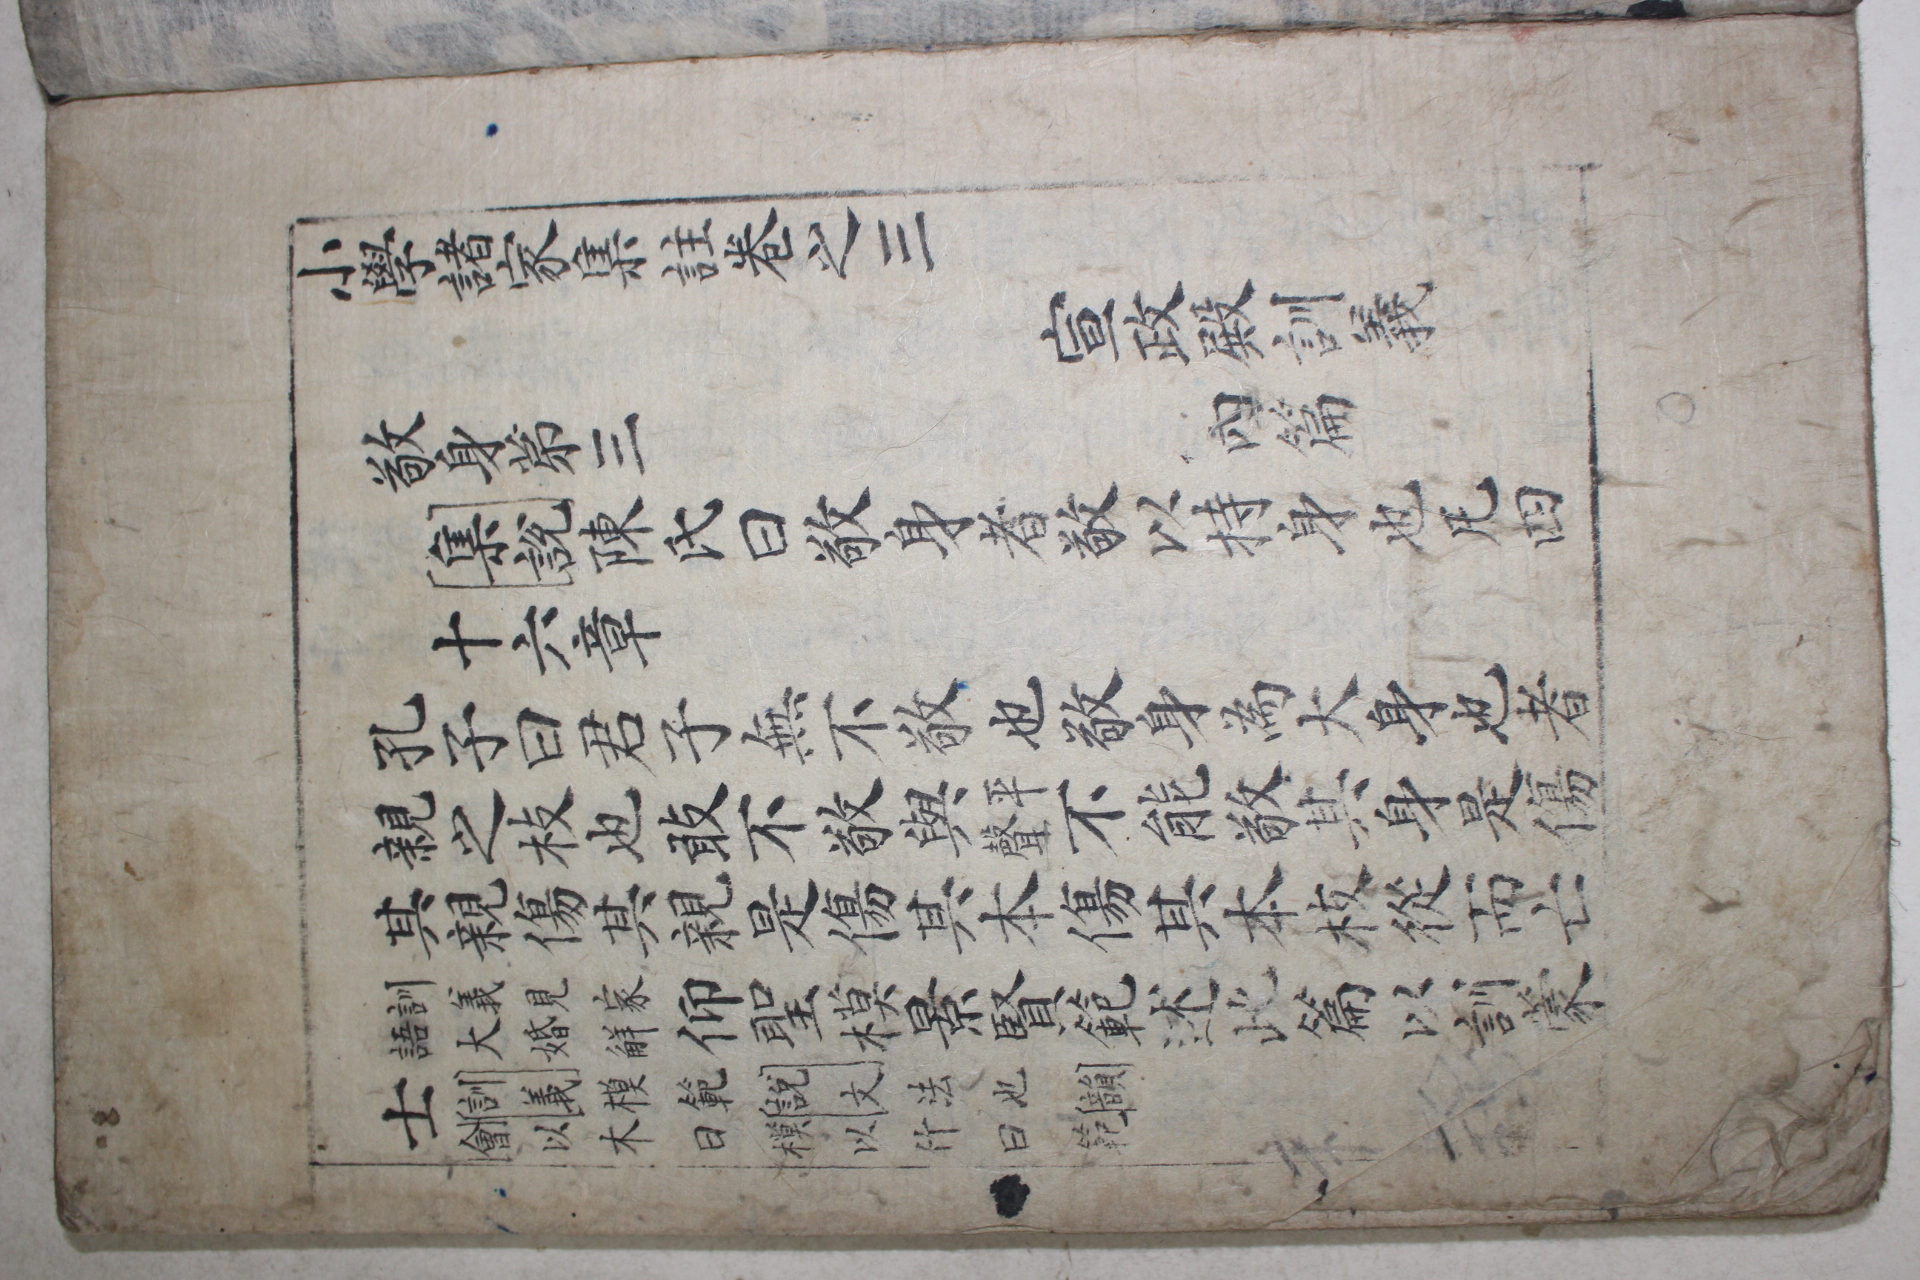 小學諸家集註卷之三
宣政殿訓義
敬身第三
內篇
集說陳氏曰敬身者敬以持身也凡四
十六章
孔子曰君子無不敬也敬身為大身也者
親之枝也敢不敬與平聲不能敬其身是傷
其親傷其親是傷其本傷其本枝從而亡
訓義見家語大婚解仰聖模景賢範述此篇以訓蒙
士訓義模範說文法也韻會以木曰模以竹曰範